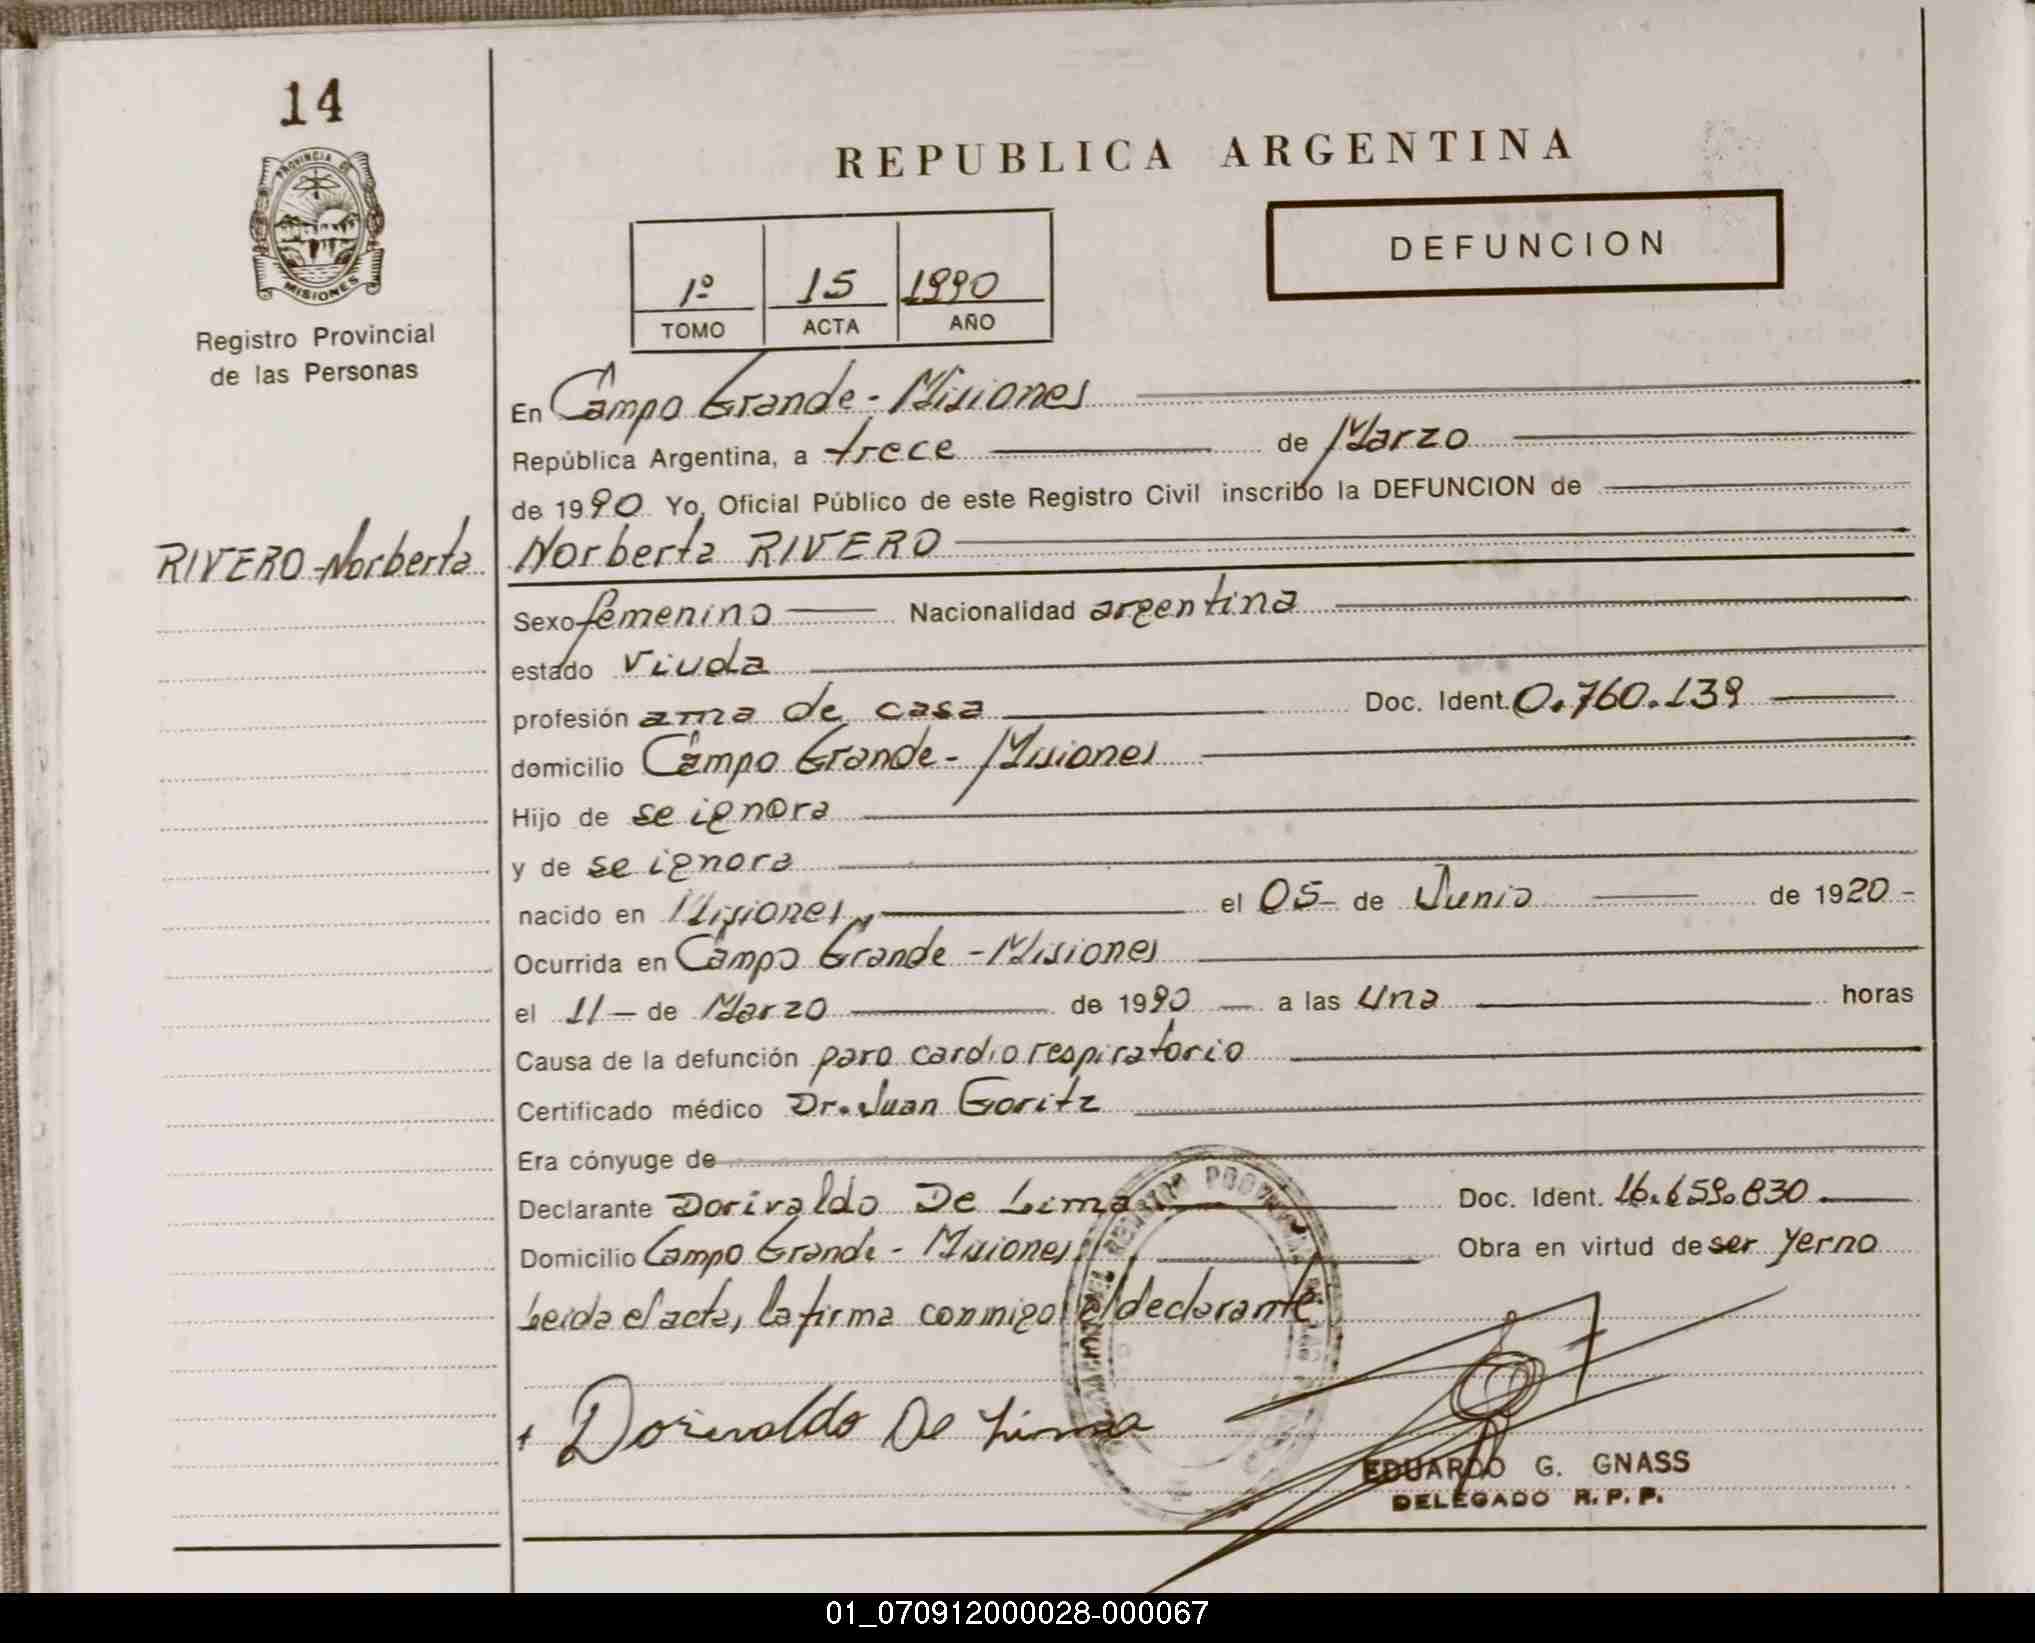 14
PROVINCIA DE
MISIONES
Registro Provincial
de las Personas
REPUBLICA ARGENTINA
DEFUNCION
1º 15 1990
TOMO ACTA AÑO
En Campo Grande - Misiones
República Argentina, a trece de Marzo
de 1990 Yo, Oficial Público de este Registro Civil inscribo la DEFUNCION de
RIVERO - Norberta
Norberta RIVERO
Sexo femenino Nacionalidad argentina
estado Viuda
profesión ama de casa Doc. Ident. 0.760.139
domicilio Campo Grande - Misiones
Hijo de se ignora
y de se ignora
nacido en Misiones el 05 - de Junio de 1920 -
Ocurrida en Campo Grande - Misiones
el 11 - de Marzo de 1990 a las una horas
Causa de la defunción paro cardio respiratorio
Certificado médico Dr. Juan Goritz
Era cónyuge de
Declarante Dorivaldo De Lima Doc. Ident. 16.659.830
Domicilio Campo Grande - Misiones Obra en virtud de ser yerno
Leída el acta, la firma conmigo el declarante
Dorivaldo De Lima
EDUARDO G. GNASS
DELEGADO R.P.P.
01_070912000028-000067